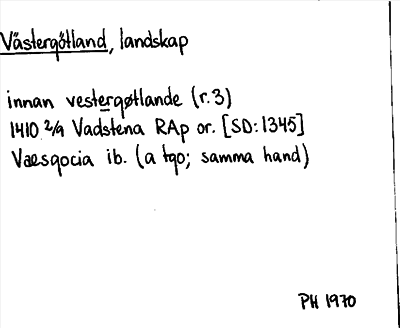 Västergötland, landskap
innan vestergøtlande (r.3)
1410 2/9 Vadstena RAp or. [SD:1345]
Vaesgocia ib. (a tgo; samma hand)
PH 1970